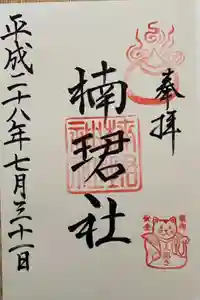 奉拝
楠珺社
平成二十八年七月三十一日